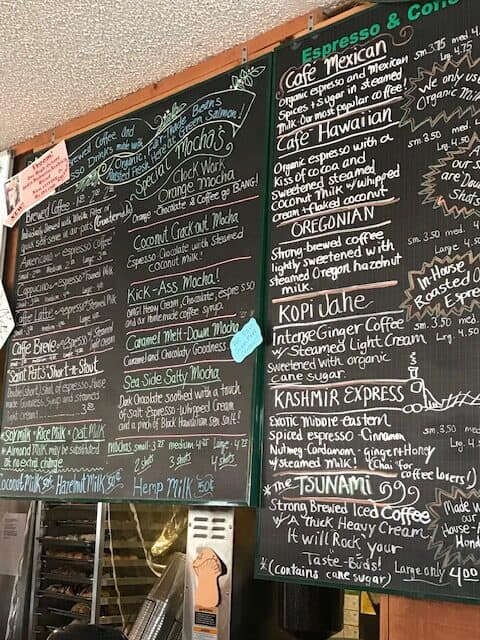 Brewed Coffee and
Espresso Drinks made with
Organic, Fair Trade Beans
Roasted Fresh Here at Green Salmon!
Brewed Coffee
quick self serve in air pots
Americano - espresso
Cappuccino - espresso
Caffe Latte - espresso
Caffe Breve - espresso
Saint Pat's Short + Stout
Double (short) shot of espresso - house
made Guinness Syrup and steamed
light cream
Soy milk • Rice Milk • Oat Milk
* Almond Milk may be substituted
at no extra charge
Coconut Milk 50¢ Hazelnut Milk 50¢
Special Mocha's
Clock Work
Orange Mocha
Orange - Chocolate & Coffee go BLANG!
Coconut Crack-out Mocha
Espresso Chocolate with Steamed
coconut milk!
Kick-Ass Mocha!
OMG! Heavy Cream, Chocolate, espresso
and our home made coffee syrup.
Caramel Melt-Down Mocha
Caramel and Chocolaty Goodness
Sea Side Salty Mocha
Dark Chocolate soothed with a touch
of salt - Espresso - Whipped Cream
and a pinch of Black Hawaiian Sea Salt!
Mochas small 3.75 medium 4.25 Large 4.75
2 shots 3 shots 4 shots
Hemp Milk 50¢
Espresso & Coffe
Café Mexican
sm. 3.75 med. 4.
Lg. 4.75
Organic espresso and Mexican
Spices + sugar in steamed
Milk. Our most popular coffee!
We only use
Organic Milk
Café Hawaiian
sm. 3.50 med. 4.
Lrg. 4.5
Organic espresso with a
kiss of cocoa and
Sweetened steamed
Coconut Milk w/ whipped
cream + flaked coconut
A
our s
are Dou
Shots
OREGONIAN
sm. 3.50 med. 4
Large 4.50
Strong brewed coffee
lightly sweetened with
steamed Oregon hazelnut
milk.
In-House
Roasted O
Espre
KOPI Jahe
sm. 3.50 med.
Lrg. 4.50
Intense Ginger Coffee
w/ Steamed Light Cream
Sweetened with organic
cane sugar.
KASHMIR EXPRESS
Exotic Middle-eastern
Spiced espresso - Cinnamon
Nutmeg - Cardamon - ginger + Honey
w/ steamed Milk! (Chai for
coffee lovers!)
sm. 3.50 med
Lrg. 4.5
* the TSUNAMI
Strong Brewed Iced Coffee
w/ A Thick Heavy Cream
It will Rock your
Taste-Buds!
* (contains cane sugar) Large only 4.00
Made w
our
House-